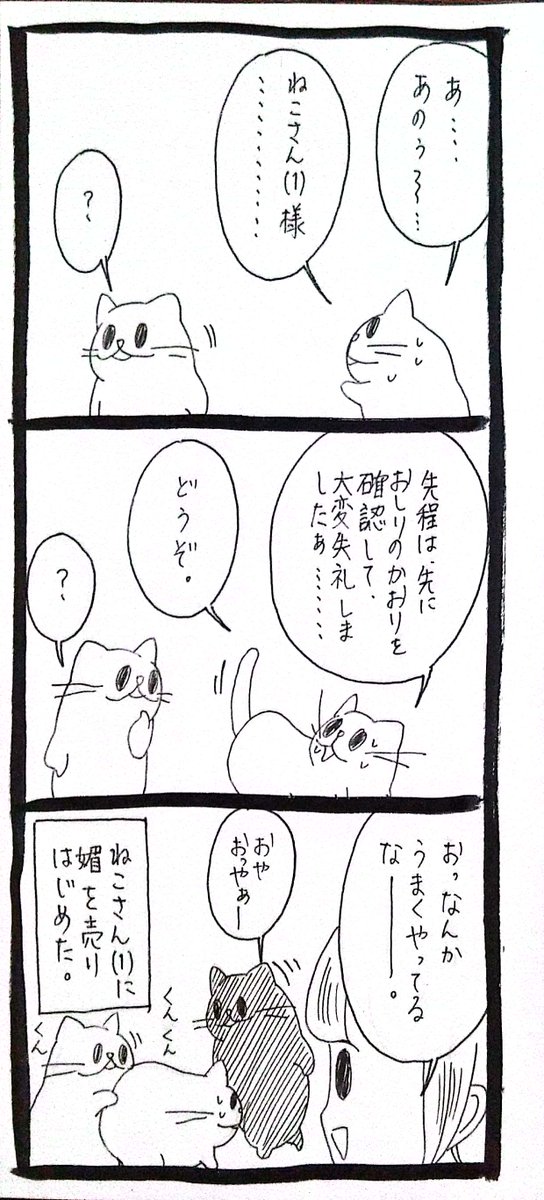 あ・・・・
あのぅ〜・・・
ねこさん(1)様
・・・・・・・・・・・・
？
先程は、先に
おしりのかおりを
確認して、
大変失礼しま
したぁ・・・・・・・
どうぞ。
？
おっなんか
うまくやってる
なーーー。
おや
おっやぁー
くんくん
くん
ねこさん(1)に
媚を売り
はじめた。